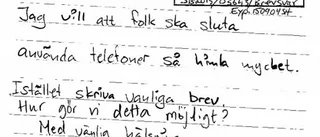 Exp. 150904SH
Jag vill att folk ska sluta
använda telefoner så himla mycket.
Istället skriva vanliga brev.
Hur gör vi detta möjligt?
Med vänlig hälsn